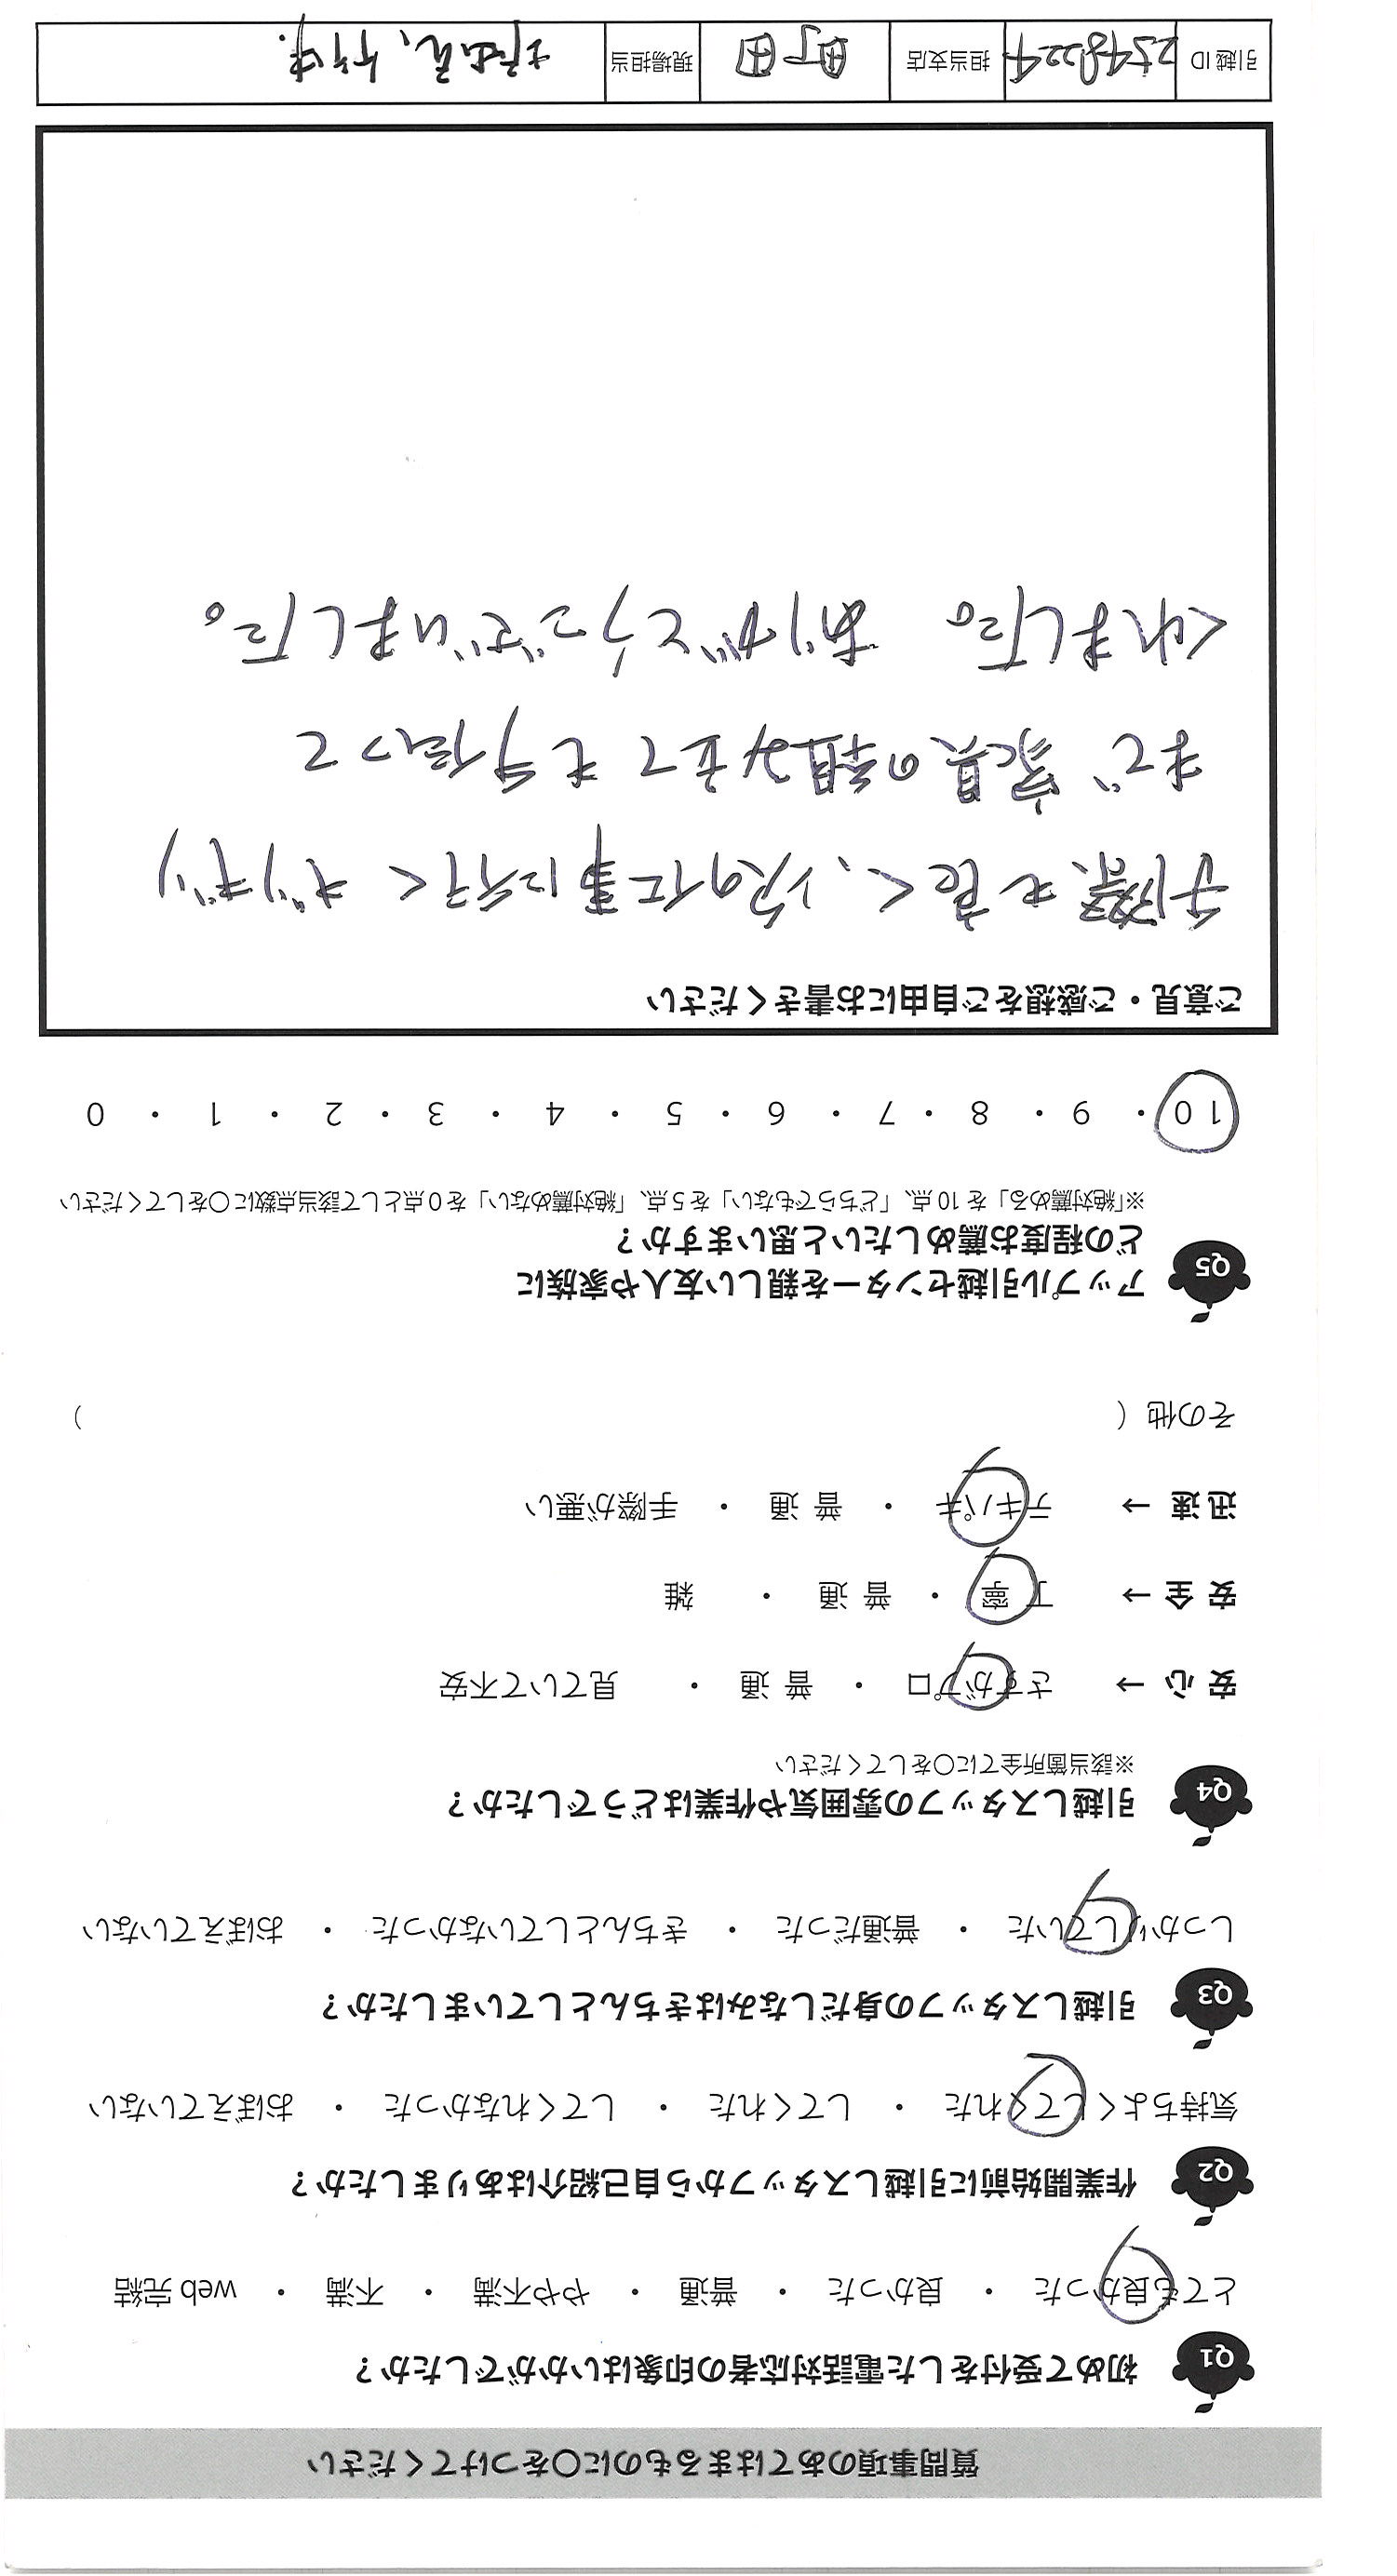 質問事項のあてはまるものに○をつけてください
Q1 初めて受付をした電話対応者の印象はいかがでしたか？
とても良かった ・ 良かった ・ 普通 ・ やや不満 ・ 不満 ・ web 完結
Q2 作業開始前に引越しスタッフから自己紹介はありましたか？
気持ちよくしてくれた ・ してくれた ・ してくれなかった ・ おぼえていない
Q3 引越しスタッフの身だしなみはきちんとしていましたか？
しっかりしていた ・ 普通だった ・ きちんとしていなかった ・ おぼえていない
Q4 引越しスタッフの雰囲気や作業はどうでしたか？
※該当箇所全てに○をしてください
安 心 → さすがプロ ・ 普 通 ・ 見ていて不安
安 全 → 丁 寧 ・ 普 通 ・ 雑
迅 速 → テキパキ ・ 普 通 ・ 手際が悪い
その他（ ）
Q5 アップル引越センターを親しい友人や家族に
どの程度お薦めしたいと思いますか？
※「絶対薦める」を 10 点、「どちらでもない」を 5 点、「絶対薦めない」を 0 点として該当点数に○をしてください
10 ・ 9 ・ 8 ・ 7 ・ 6 ・ 5 ・ 4 ・ 3 ・ 2 ・ 1 ・ 0
ご意見・ご感想をご自由にお書きください
手際も良く、次の仕事に行く ギリギリ
まで 家具の組み立ても手伝って
くれました。 ありがとうございました。
引越 ID 2548224 担当支店 町田 現場担当